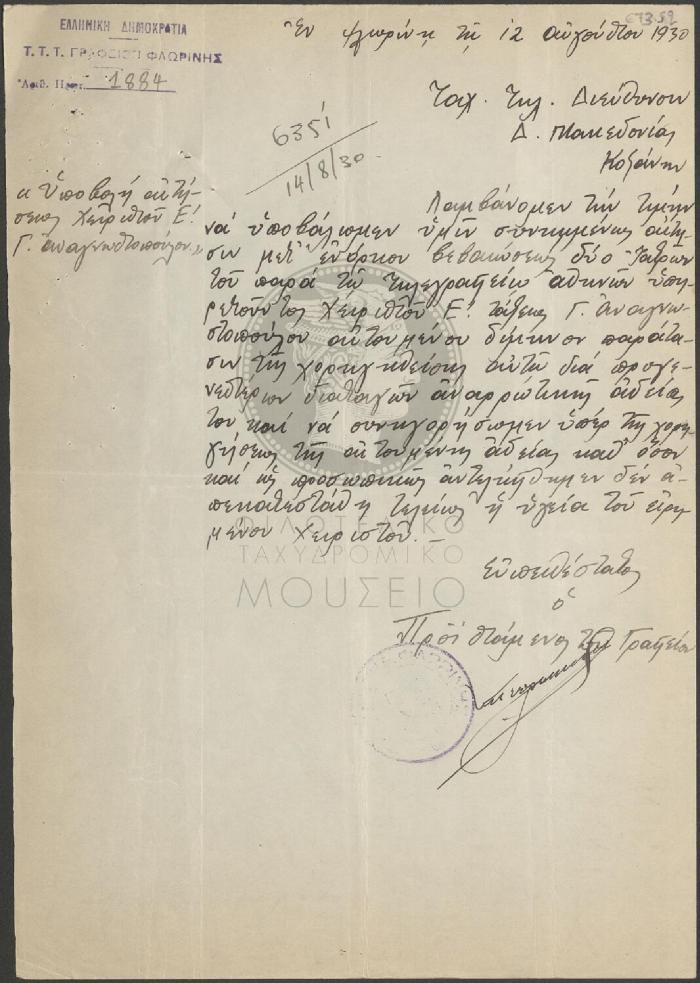 ΕΛΛΗΝΙΚΗ ΔΗΜΟΚΡΑΤΙΑ
Τ.Τ.Τ. ΓΡΑΦΕΙΟΝ ΦΛΩΡΙΝΗΣ
Ἀριθ. Πρωτ. 1884
Ἐν Φλωρίνῃ τῇ 12 αὐγούστου 1930
Ταχ. Τηλ. Διεύθυνσιν
Δ. Μακεδονίας
Κοζάνην
6351
14/8/30.
« Ὑποβολή αἰτή-
σεως Χειριστοῦ Ε!
Γ. ἀναγνωστοπούλου »
Λαμβάνομεν τήν τιμήν
νά ὑποβάλωμεν ὑμῖν συνημμένως αἴτη-
σιν μετ' ἐνόρκου βεβαιώσεως δύο Ἰατρῶν
τοῦ παρά τῷ Τηλεγραφείῳ ἀθηνῶν ὑπη-
ρετοῦντος Χειριστοῦ Ε! τάξεως Γ. Ἀναγνω-
στοπούλου αἰτουμένου δίμηνον παράτα-
σιν τῆς χορηγηθείσης αὐτῷ διά προγε-
νεστέρων διαταγῶν ἀναρρωτικῆς ἀδείας
του καί νά συνηγορήσωμεν ὑπέρ τῆς χορη-
γήσεως τῆς αἰτουμένης ἀδείας καθ' ὅσον
καί ὡς προσωπικῶς ἀντελήφθημεν δέν ἀ-
πεκατεστάθη τελείως ἡ ὑγεία τοῦ εἰρη-
μένου Χειριστοῦ.
ΦΙΛΟΤΕΛΙΚΟ
ΤΑΧΥΔΡΟΜΙΚΟ
ΜΟΥΣΕΙΟ
Εὐπειθέστατος
ὁ
Προϊστάμενος τοῦ Γραφείου